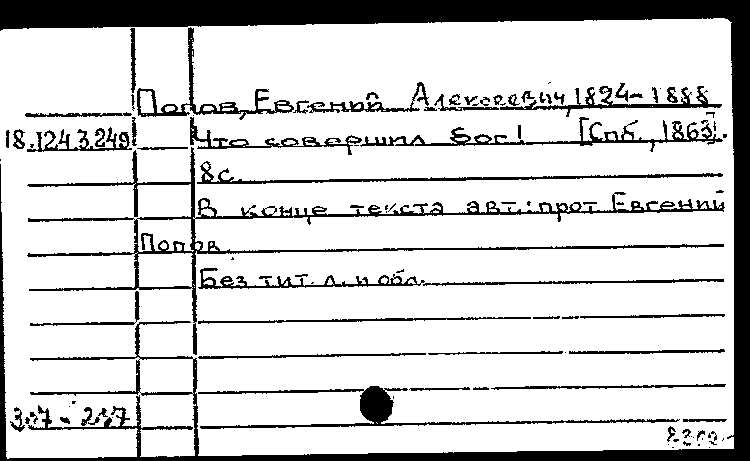 Попов, Евгений Алексеевич, 1824-1888
18.124.3.249 Что совершил Бог! [Спб., 1863].
8с.
В конце текста авт.: прот Евгений
Попов.
Без тит. л. и обл.